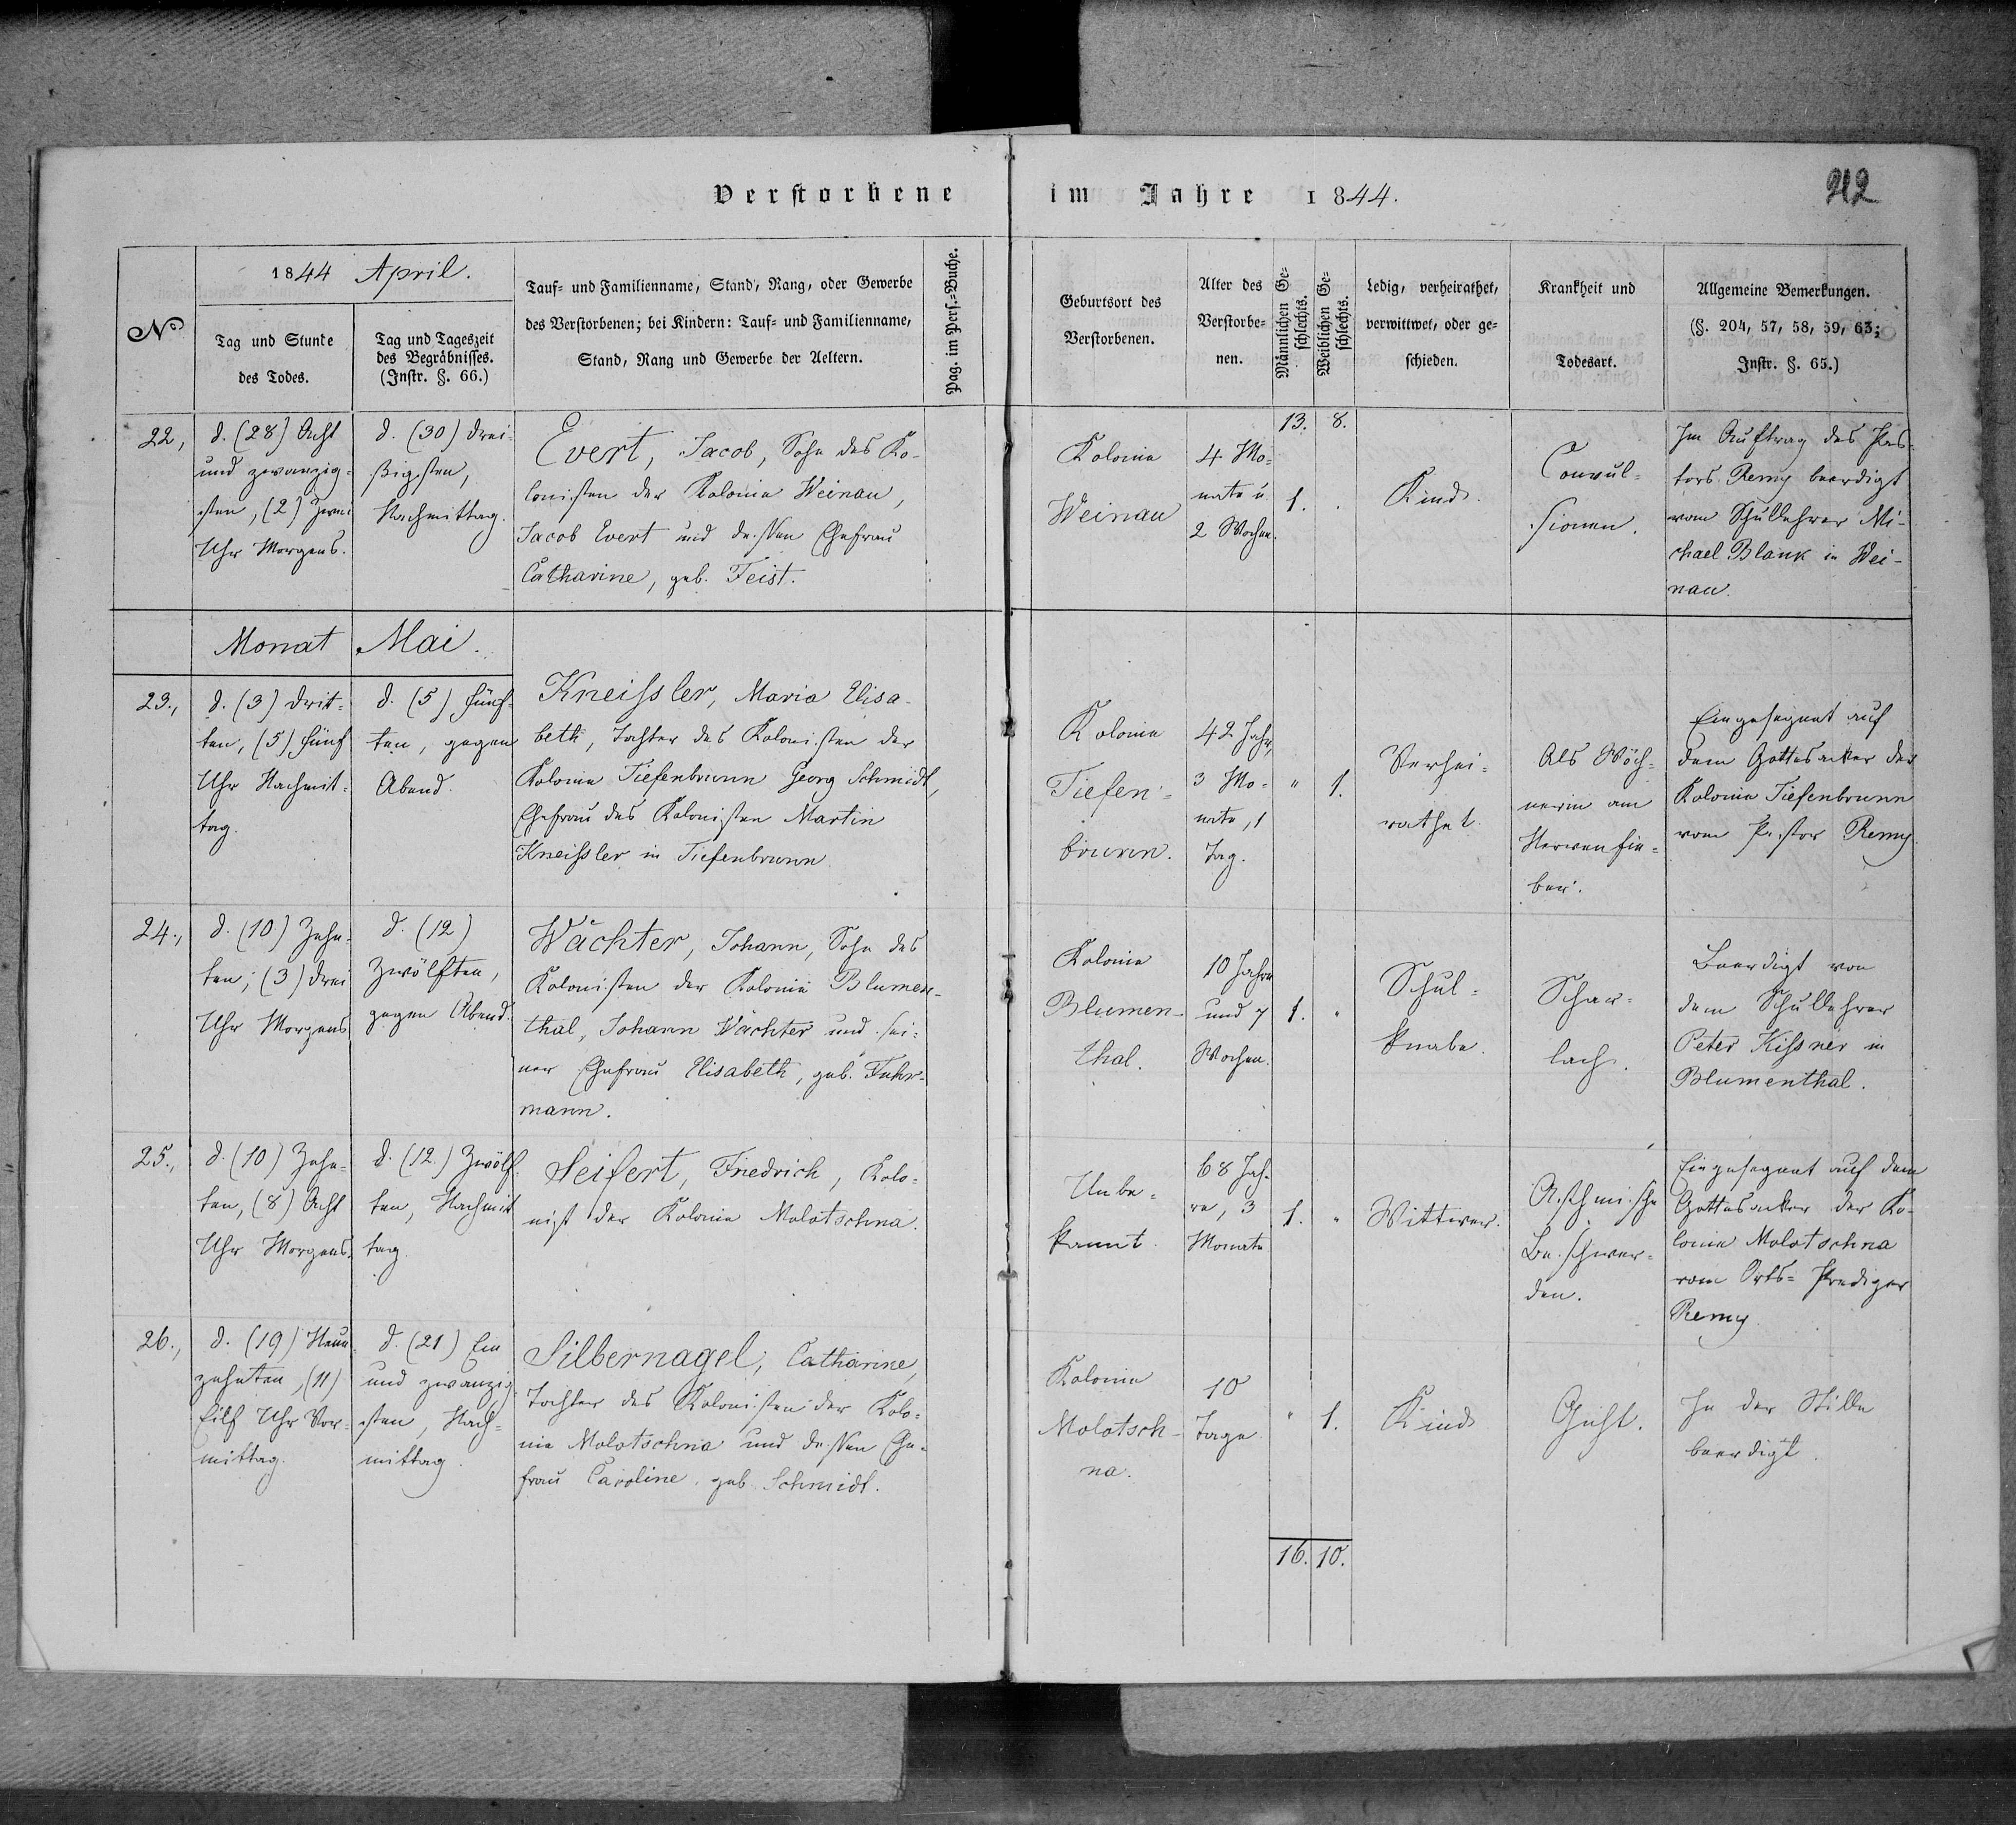 Verstorbene im Jahre 1844.
212
No
1844 April.
Tag und Stunde
des Todes.
Tag und Tageszeit
des Begräbnisses.
(Instr. §. 66.)
Tauf- und Familienname, Stand, Rang, oder Gewerbe
des Verstorbenen; bei Kindern: Tauf- und Familienname,
Stand, Rang und Gewerbe der Aeltern.
Pag. im Pers.-Buche.
Geburtsort des
Verstorbenen.
Alter des
Verstorbe-
nen.
Männlichen Ge-
schlechts.
Weiblichen Ge-
schlechts.
Ledig, verheirathet,
verwittwet, oder ge-
schieden.
Krankheit und
Todesart.
Allgemeine Bemerkungen.
(§. 204, 57, 58, 59, 63;
Instr. §. 65.)
22,
d. (28) Acht
und zwanzig-
sten, (2) Zwei
Uhr Morgens.
d. (30) drei-
ßigsten,
Nachmittag.
Evert, Jacob, Sohn des Ko-
lonisten der Kolonie Weinau,
Jacob Evert und dessen Ehefrau
Catharine, geb. Feist.
Kolonie
Weinau
4 Mo-
nate u.
2 Wochen.
13. 8.
1. .
Kind.
Convul-
sionen.
Im Auftrag des Pas-
tors Remy beerdigt
vom Schullehrer Mi-
chael Blank in Wei-
nau.
Monat Mai.
23.,
d. (3) drit-
ten, (5) fünf
Uhr Nachmit-
tag.
d. (5) fünf-
ten, gegen
Abend.
Kneissler, Maria Elisa-
beth, Tochter des Kolonisten der
Kolonie Tiefenbrunn Georg Schmidt,
Ehefrau des Kolonisten Martin
Kneissler in Tiefenbrunn.
Kolonie
Tiefen-
brunn.
42 Jahr,
3 Mo-
nate, 1
Tag.
" 1.
Verhei-
rathet.
Als Wöch-
nerin am
Nervenfie-
ber.
Eingesegnet auf
dem Gottesacker der
Kolonie Tiefenbrunn
vom Pastor Remy.
24.,
d. (10) Zehn-
ten; (3) drei
Uhr Morgens
d. (12)
Zwölften,
gegen Abend.
Wächter, Johann, Sohn des
Kolonisten der Kolonie Blumen-
thal, Johann Wächter und sei-
ner Ehefrau Elisabeth, geb. Fuhr-
mann.
Kolonie
Blumen-
thal.
10 Jahre
und 7
Wochen.
1. "
Schul-
knabe.
Schar-
lach.
Beerdigt von
dem Schullehrer
Peter Kissner in
Blumenthal.
25.,
d. (10) Zehn-
ten, (8) Acht
Uhr Morgens.
d. (12) Zwölf-
ten, Nachmit
tag.
Seifert, Friedrich, Kolo-
nist der Kolonie Molotschna.
Unbe-
kannt.
68 Jah-
re, 3
Monate
1. "
Wittwer.
Asthmische
Beschwer-
den.
Eingesegnet auf dem
Gottesacker der Ko-
lonie Molotschna
vom Orts-Prediger
Remy.
26.,
d. (19) Neun
zehnten, (11)
Eilf Uhr Vor-
mittag.
d. (21) Ein
und zwanzig-
sten, Nach-
mittag.
Silbernagel, Catharine,
Tochter des Kolonisten der Kolo-
nie Molotschna und dessen Ehe-
frau Caroline geb. Schmidt.
Kolonie
Molotsch-
na.
10
Tage
" 1.
Kind
Gicht.
In der Stille
beerdigt.
16. 10.